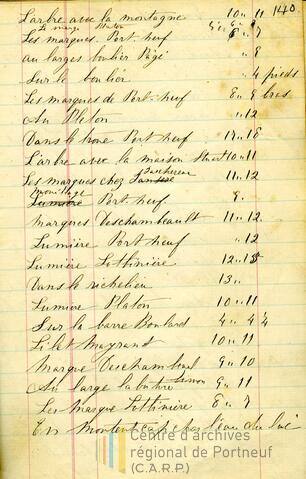 140
L'arbre avec la montagne 10 " 11
Les marques Port. neuf 6 " 7
au large boulier Pagé " 8
Sur le boulier " 4 pieds
Les marques de Port. neuf 8 " 9 bras
Au Platon " 12
Dans le trou Port neuf 17 " 18
L'arbre avec la maison 10 " 11
Les marques chez 11 " 12
mouillage
Lumière Port. neuf 9 "
Marques Deschambault 11 " 12
Lumière Port neuf " 12
Lumière Lotbinière 12 "
Dans le richelieu 13 "
Lumiere Platon 10 " 11
Sur la barre Boulard 4 " 4 ½
Li let Mayrand 10 " 11
Marque Deschambault 9 " 10
Au large 9 " 11
Les Marque Lotbinière 8 " 9
En Montent cap chas l'eau du lac
Centre d'archives
régional de Portneuf
(C.A.R.P.)